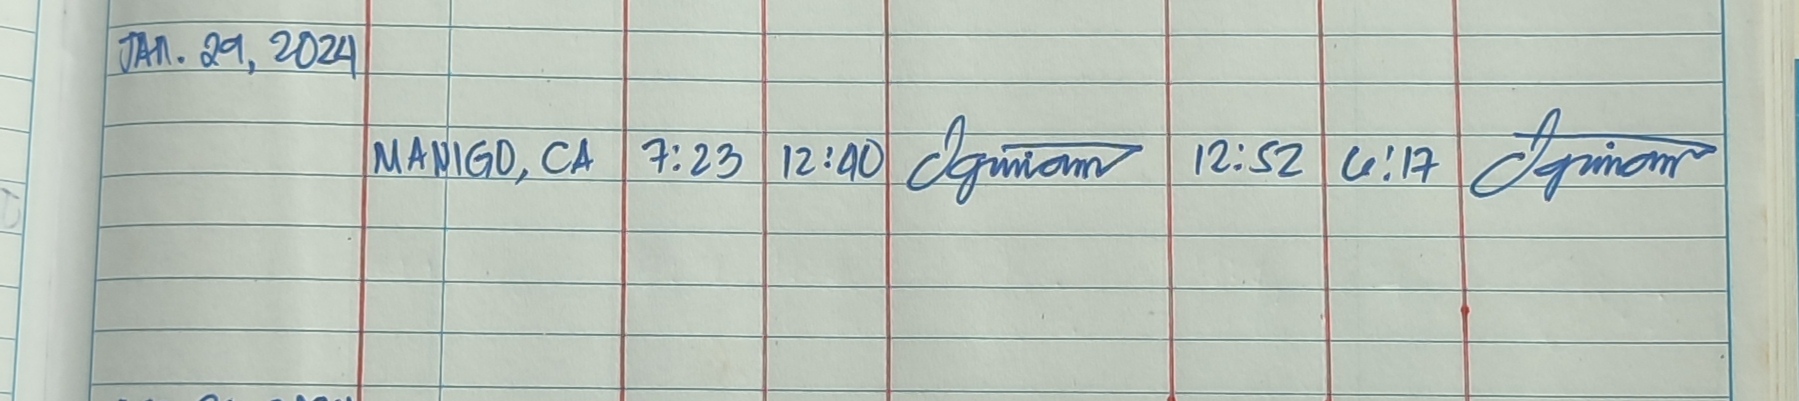 JAN. 29, 2024
MANIGO, CA 7:23 12:40 12:52 6:17